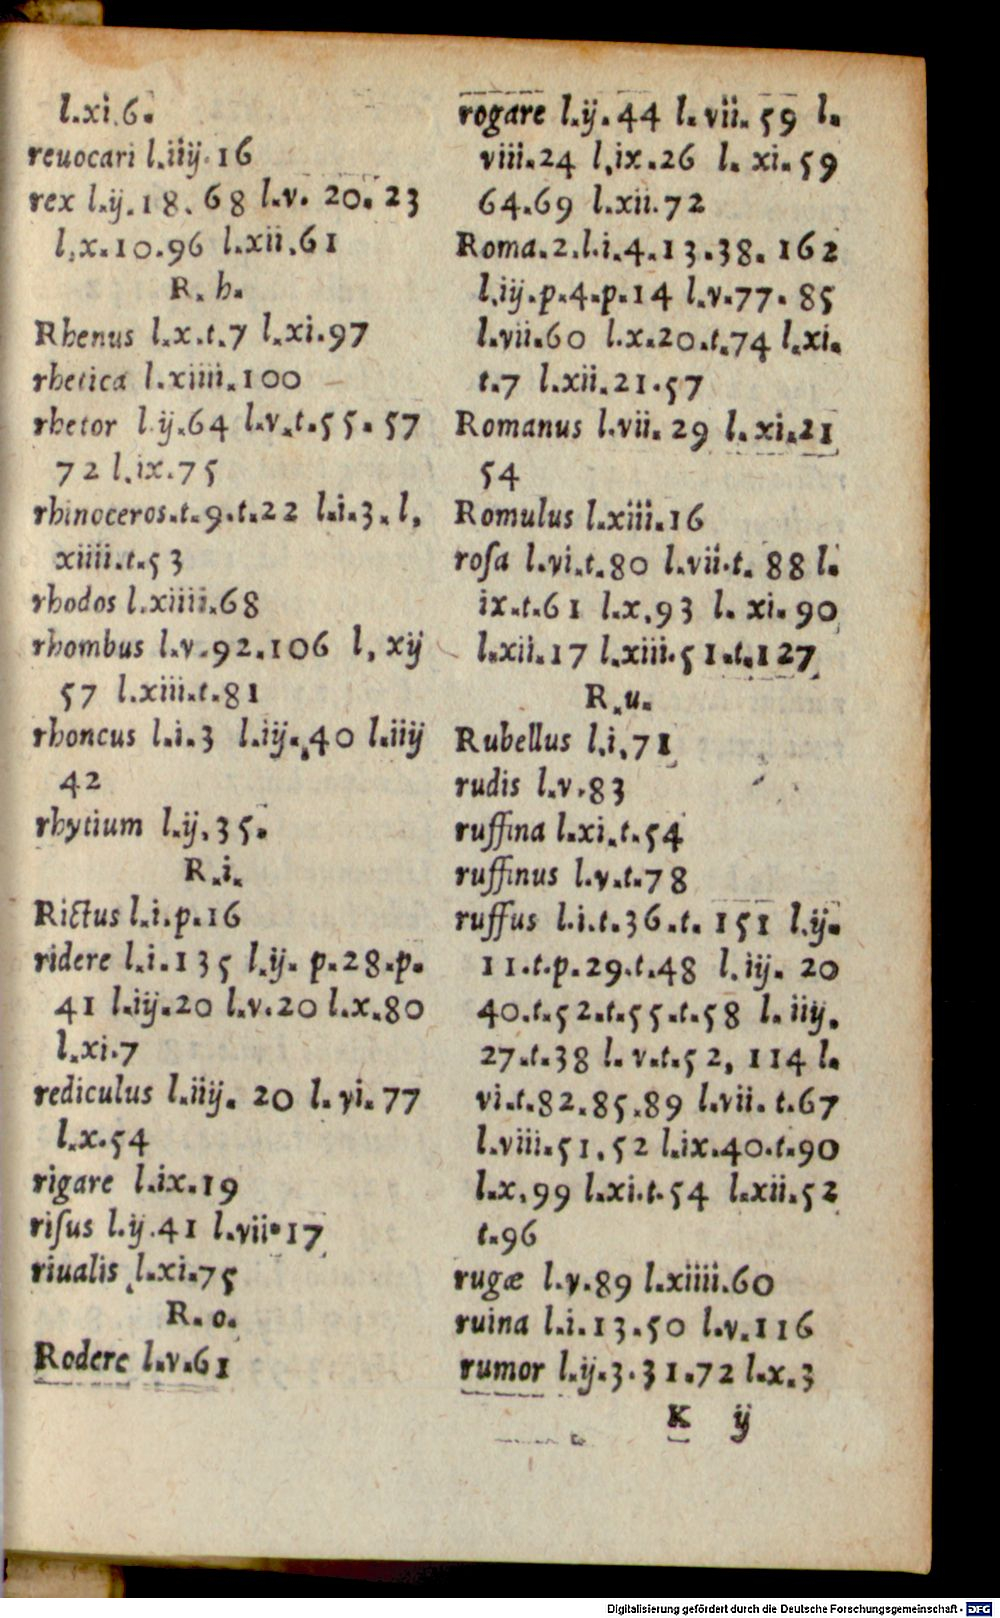 l.xi.6.
reuocari l.iiij.16
rex l.ij.18. 68 l.v. 20. 23
l.x.10.96 l.xii.61
R. h.
Rhenus l.x.t.7 l.xi.97
rhetica l.xiiii.100
rhetor l.ij.64 l.v.t.55. 57
72 l.ix.75
rhinoceros.t.9.t.22 l.i.3. l.
xiiii.t.53
rhodos l.xiiii.68
rhombus l.v.92.106 l, xij
57 l.xiii.t.81
rhoncus l.i.3 l.iij.40 l.iiij
42
rhytium l.ij.35.
R.i.
Rictus l.i.p.16
ridere l.i.135 l.ij. p.28.p.
41 l.iij.20 l.v.20 l.x.80
l.xi.7
rediculus l.iiij. 20 l. vi. 77
l.x.54
rigare l.ix.19
riſus l.ij.41 l.vii.17
riualis l.xi.75
R. o.
Rodere l.v.61
rogare l.ij.44 l.vii.59 l.
viii.24 l.ix.26 l. xi.59
64.69 l.xii.72
Roma.2.l.i.4.13.38. 162
l.iij.p.4.p.14 l.v.77. 85
l.vii.60 l.x.20.t.74 l.xi.
t.7 l.xii.21.57
Romanus l.vii. 29 l. xi.21
54
Romulus l.xiii.16
roſa l.vi.t.80 l.vii.t. 88 l.
ix.t.61 l.x.93 l. xi. 90
l.xii.17 l.xiii.51.t.127
R.u.
Rubellus l.i.71
rudis l.v.83
ruffina l.xi.t.54
ruffinus l.v.t.78
ruffus l.i.t.36.t. 151 l.ij.
11.t.p.29.t.48 l. iij. 20
40.t.52.t.55.t.58 l. iiij.
27.t.38 l. v.t.52, 114 l.
vi.t.82.85.89 l.vii. t.67
l.viii.51.52 l.ix.40.t.90
l.x.99 l.xi.t.54 l.xii.52
t.96
rugæ l.v.89 l.xiiii.60
ruina l.i.13.50 l.v.116
rumor l.ij.3.31.72 l.x.3
K ij
Digitalisierung gefördert durch die Deutsche Forschungsgemeinschaft - DFG